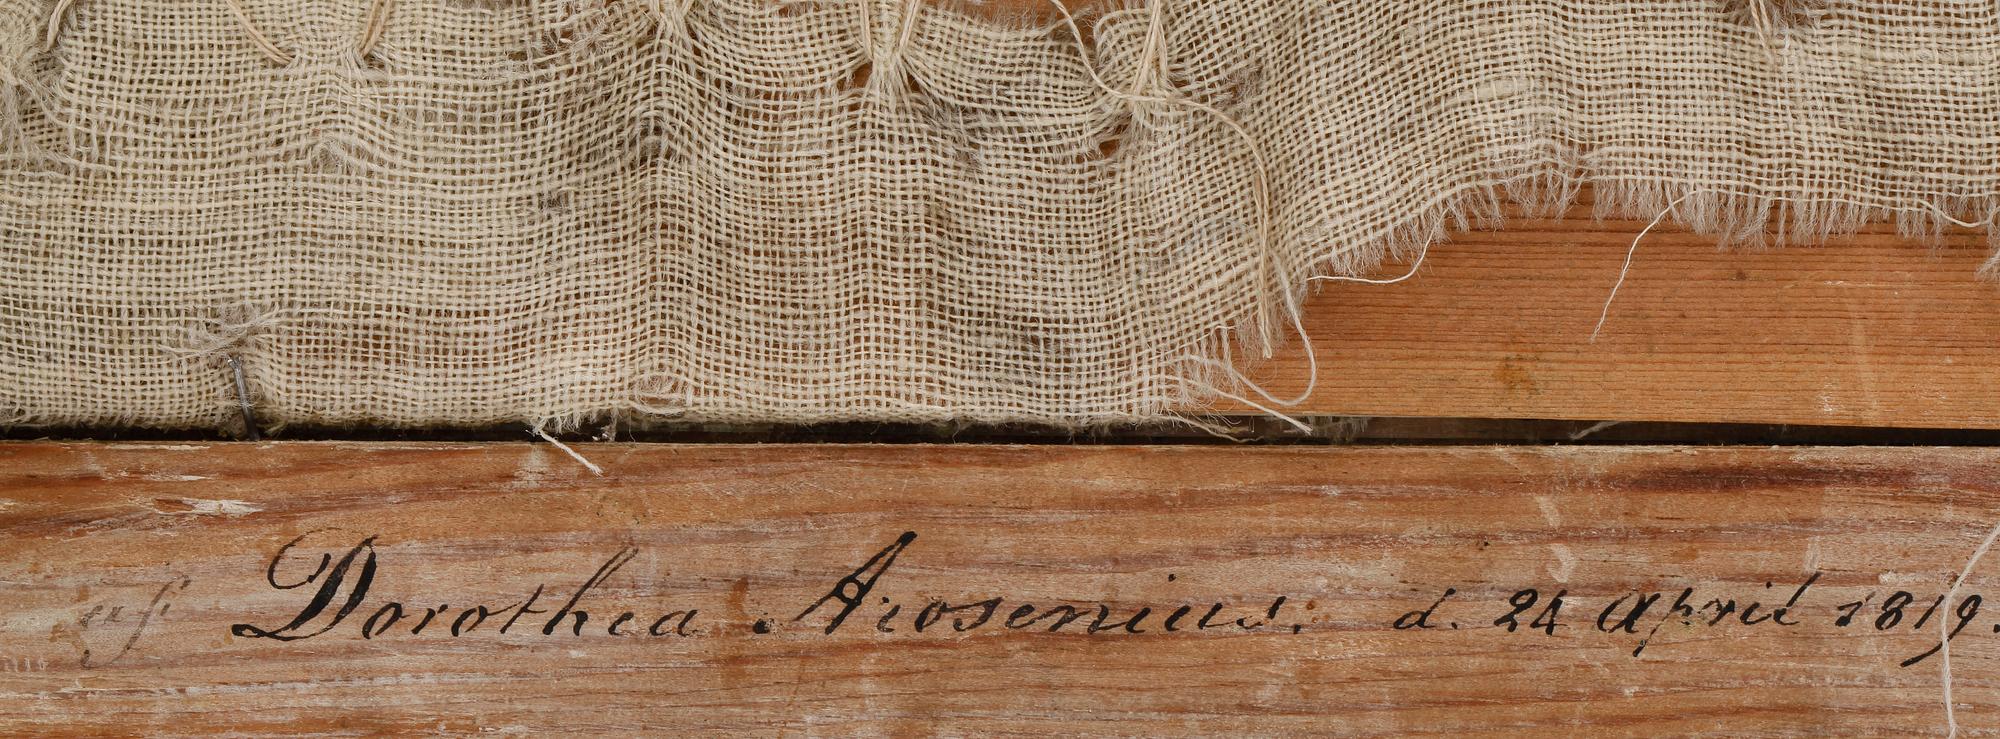 af Dorothea Arosenius. d. 24 April 1819.